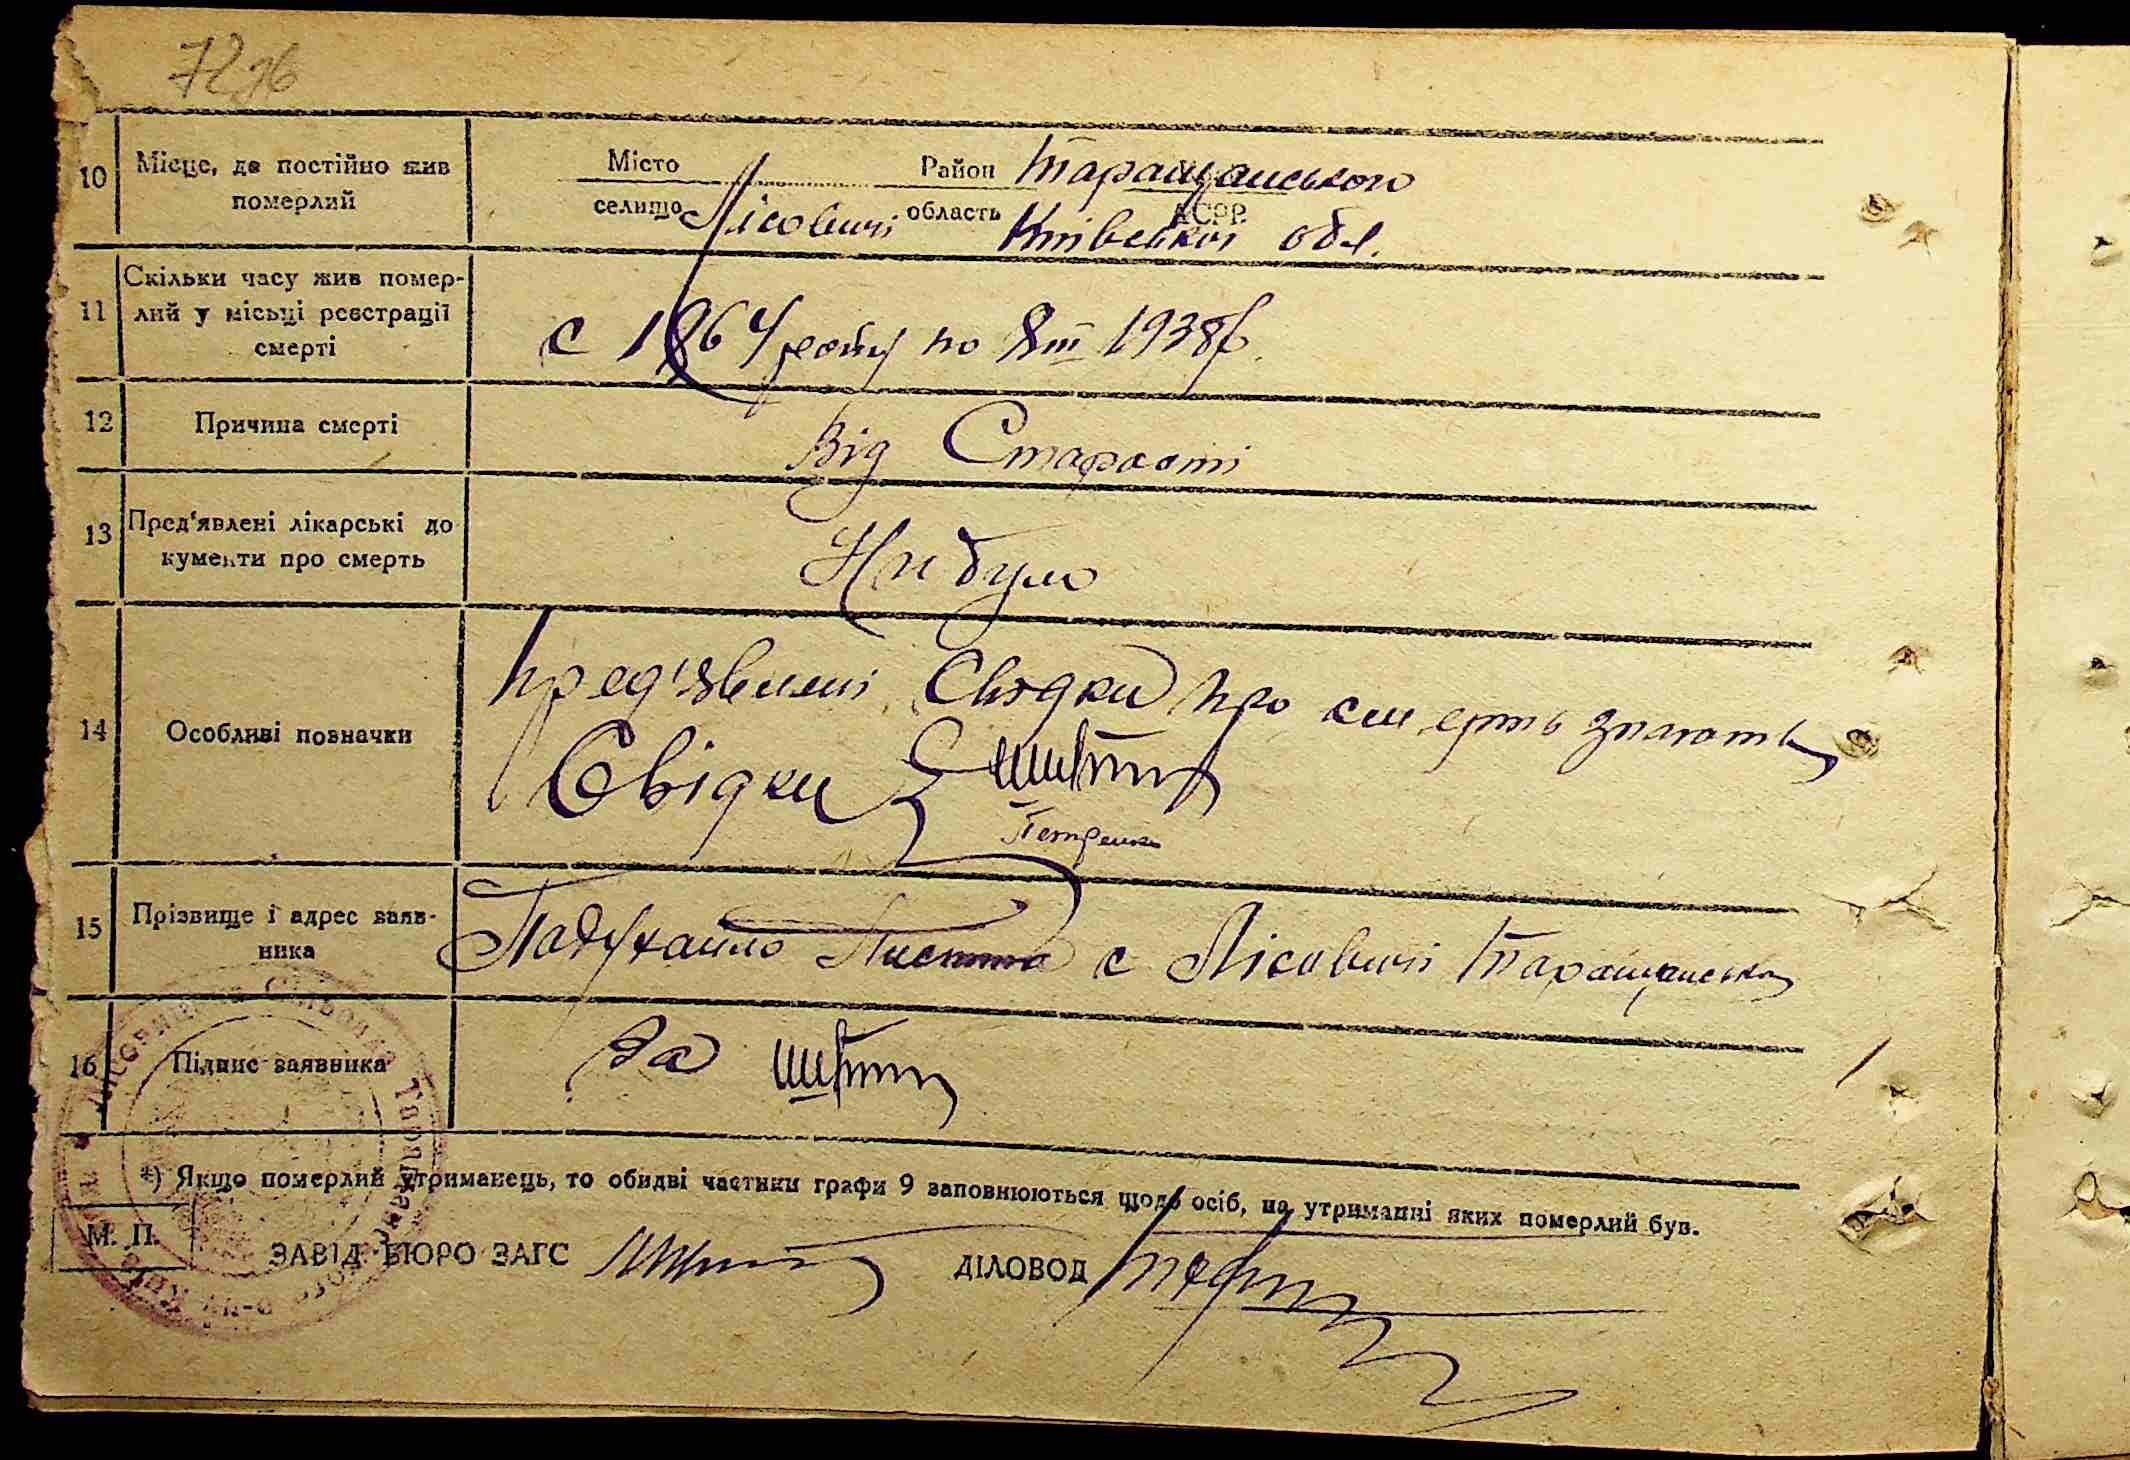 7216
10 Місце, де постійно жив
померлий
Місто Район Таращанського
селище Лісовичі область АСРР. Київської обл.
11 Скільки часу жив помер-
лий у місьці реєстрації
смерті
с 1864 року по 8 III 1938 р.
12 Причина смерті
Від Старости
13 Пред'явлені лікарські до
кументи про смерть
Ни було
14 Особливі позначки
Пред'явилиі Свідки про смерть знають
Свідки
Петренко
15 Прізвище і адрес заяв-
ника
с Лісовичі Таращанськ
16 Підпис заявника
За
*) Якщо померлий утриманець, то обидві частини графи 9 заповнюються щодо осіб, на утриманні яких померлий був.
М. П.
ЗАВІД. БЮРО ЗАГС ДІЛОВОД